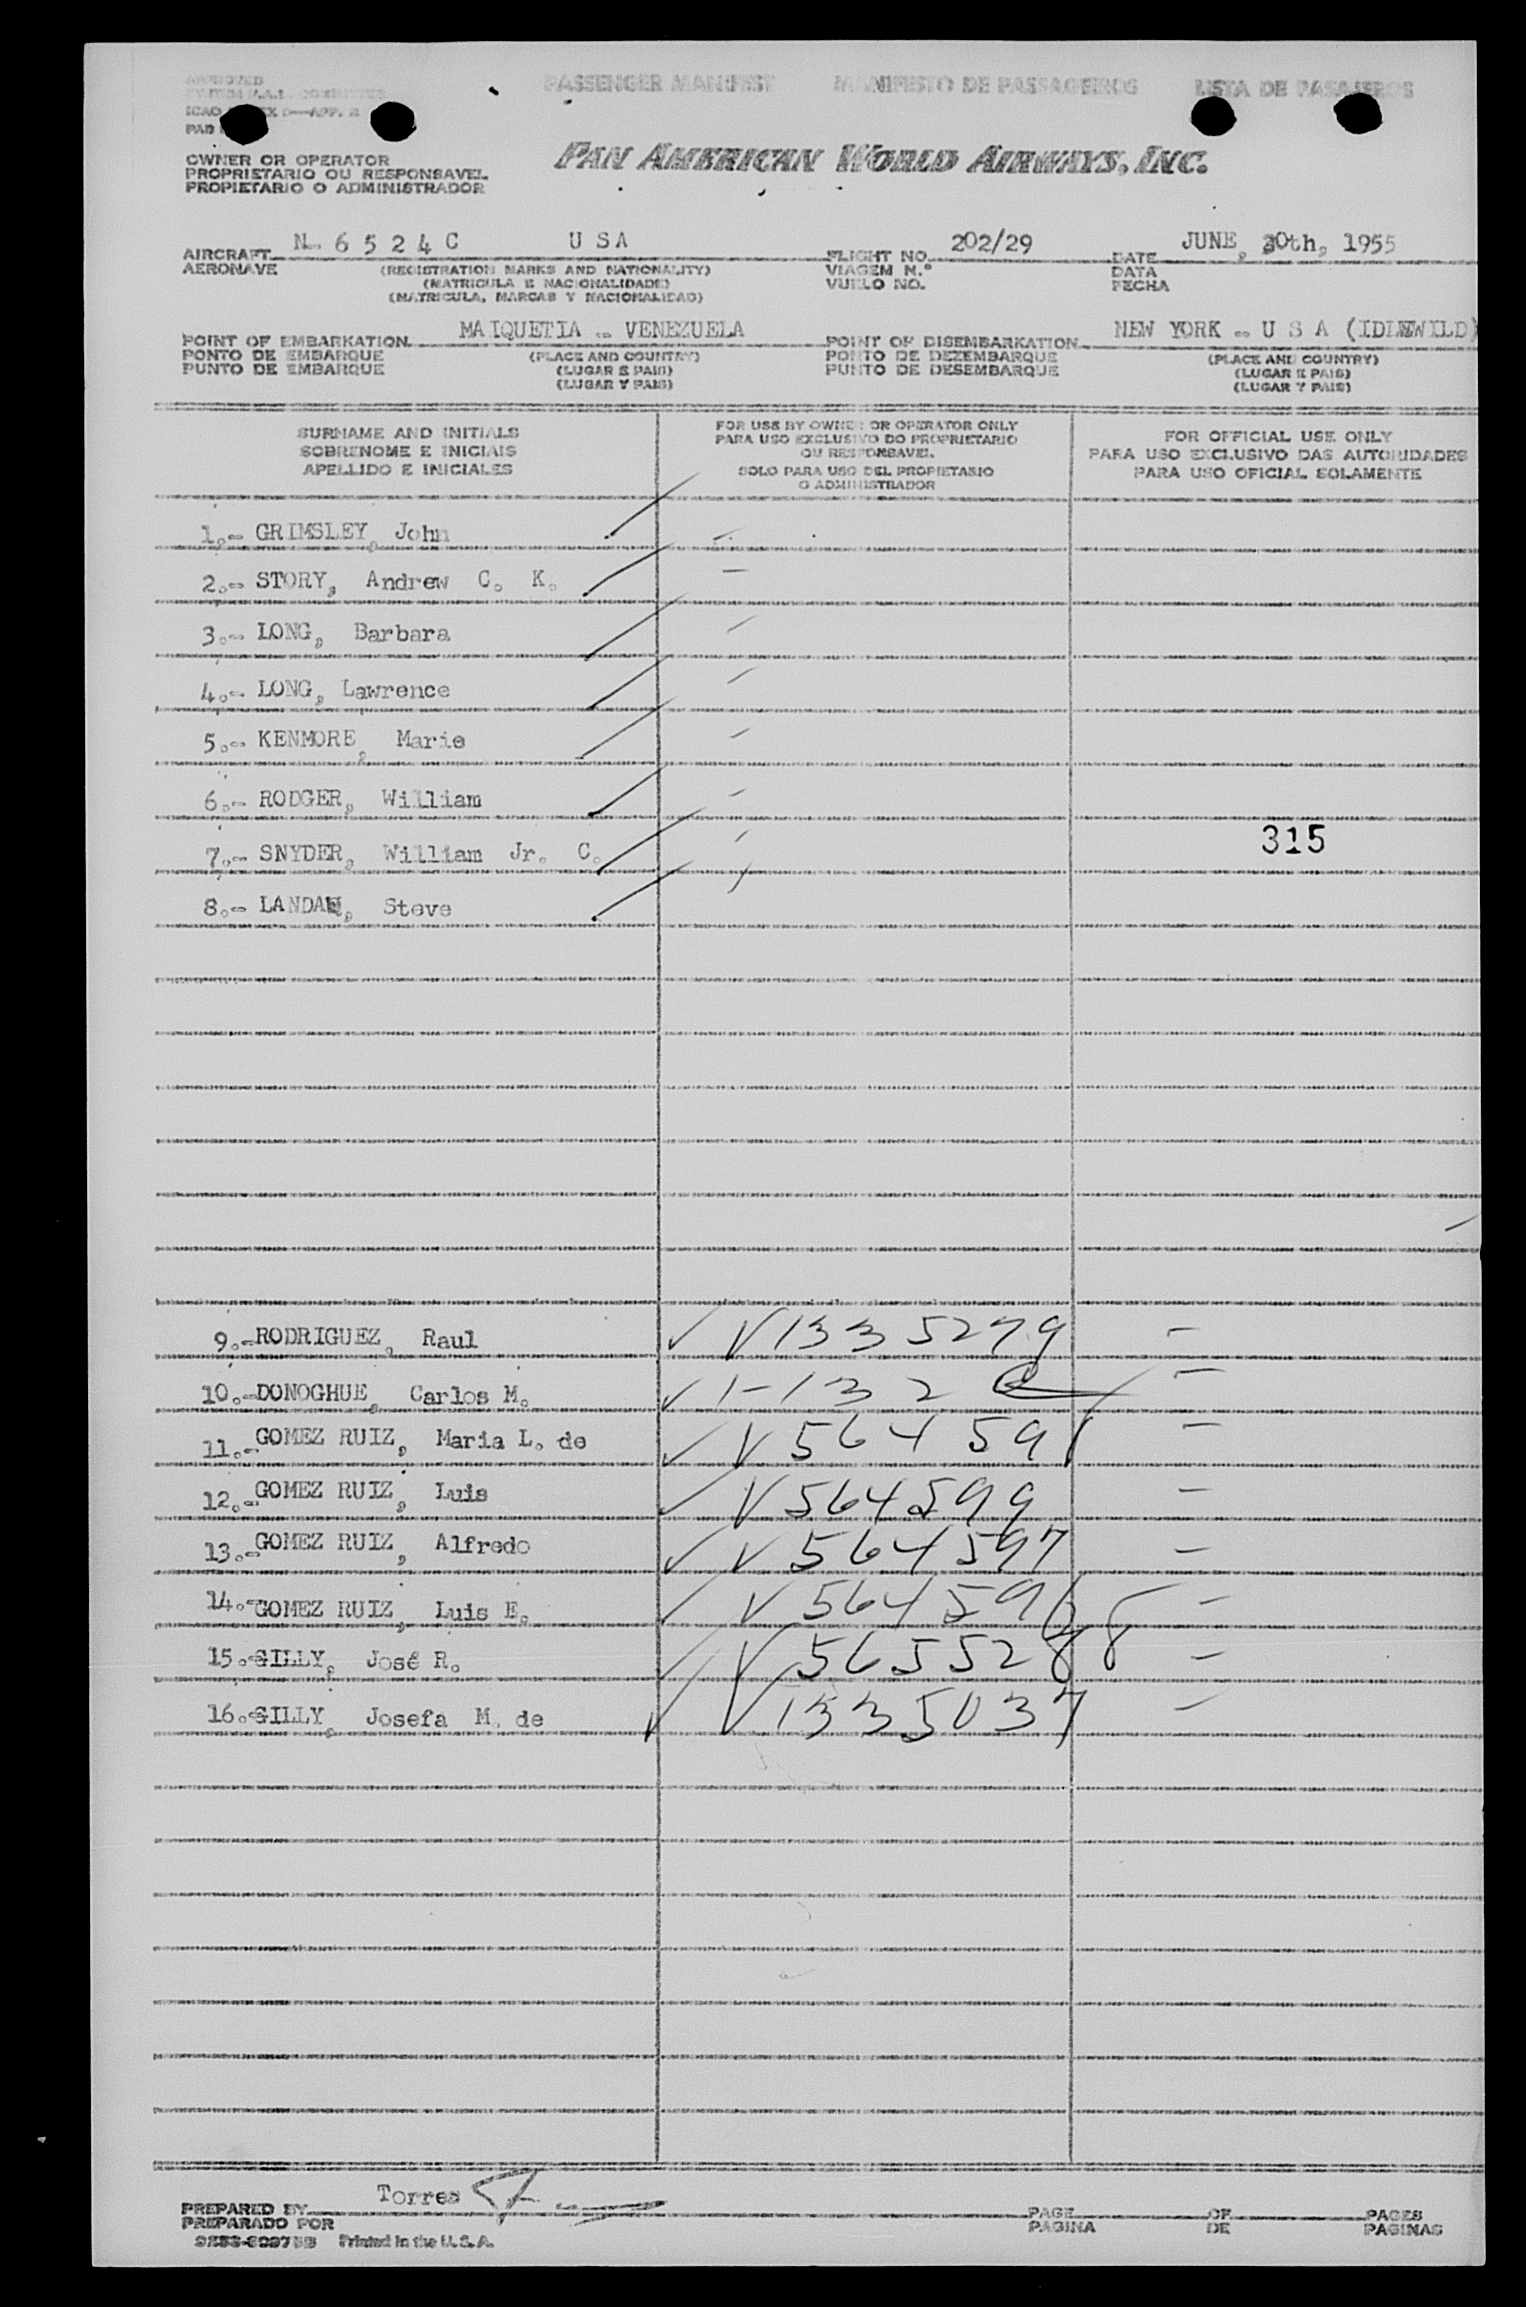 APPROVED
PASSENGER MANIFEST MANIFESTO DE PASSAGEIROS LISTA DE PASAJEROS
OWNER OR OPERATOR
PROPRIETARIO OU RESPONSAVEL
PROPIETARIO O ADMINISTRADOR
PAN AMERICAN WORLD AIRWAYS, INC.
AIRCRAFT N- 6 5 2 4 C U S A FLIGHT NO. 202/29 DATE JUNE, 30th, 1955
AERONAVE (REGISTRATION MARKS AND NATIONALITY) VIAGEM N.º DATA
(MATRICULA E NACIONALIDADE) VUELO NO. FECHA
(MATRICULA, MARCAS Y NACIONALIDAD)
POINT OF EMBARKATION MAIQUETIA -- VENEZUELA POINT OF DISEMBARKATION NEW YORK -- U S A (IDLEWILD)
PONTO DE EMBARQUE (PLACE AND COUNTRY) PONTO DE DEZEMBARQUE (PLACE AND COUNTRY)
PUNTO DE EMBARQUE (LUGAR E PAIS) PUNTO DE DESEMBARQUE (LUGAR E PAIS)
(LUGAR Y PAIS) (LUGAR Y PAIS)
SURNAME AND INITIALS
SOBRENOME E INICIAIS
APELLIDO E INICIALES
FOR USE BY OWNER OR OPERATOR ONLY
PARA USO EXCLUSIVO DO PROPRIETARIO
OU RESPONSAVEL
SOLO PARA USO DEL PROPIETARIO
O ADMINISTRADOR
FOR OFFICIAL USE ONLY
PARA USO EXCLUSIVO DAS AUTORIDADES
PARA USO OFICIAL SOLAMENTE
1.- GRIMSLEY, John
2.- STORY, Andrew C. K.
3.- LONG, Barbara
4.- LONG, Lawrence
5.- KENMORE, Marie
6.- RODGER, William
7.- SNYDER, William Jr. C. 315
8.- LANDAU, Steve
9.-RODRIGUEZ, Raul V1335279
10.-DONOGHUE, Carlos M. 1-132
11.-GOMEZ RUIZ, Maria L. de V564598
12.-GOMEZ RUIZ, Luis V564599
13.-GOMEZ RUIZ, Alfredo V564597
14.-GOMEZ RUIZ, Luis E. V564596
15.-GILLY, José R. V565528
16.-GILLY, Josefa M. de V1335037
PREPARED BY Torres PAGE OF PAGES
PREPARADO POR PAGINA DE PAGINAS
Printed in the U.S.A.